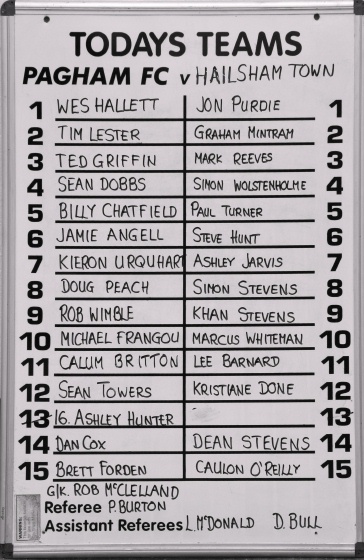 TODAYS TEAMS
PAGHAM FC v HAILSHAM TOWN
1 WES HALLETT JON PURDIE 1
2 TIM LESTER GRAHAM MINTRAM 2
3 TED GRIFFIN MARK REEVES 3
4 SEAN DOBBS SIMON WOLSTENHOLME 4
5 BILLY CHATFIELD PAUL TURNER 5
6 JAMIE ANGELL STEVE HUNT 6
7 KIERON URQUHART ASHLEY JARVIS 7
8 DOUG PEACH SIMON STEVENS 8
9 ROB WIMBLE KHAN STEVENS 9
10 MICHAEL FRANGOU MARCUS WHITEMAN 10
11 CALUM BRITTON LEE BARNARD 11
12 SEAN TOWERS KRISTIANE DONE 12
13 16. ASHLEY HUNTER 13
14 DAN COX DEAN STEVENS 14
15 BRETT FORDEN CAULON O'REILLY 15
G/K. ROB McCLELLAND
Referee P. BURTON
Assistant Referees L. McDONALD D. BULL